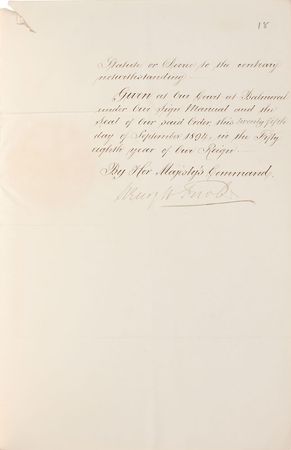 18
Statute or Decree to the contrary
notwithstanding
Given at Our Court at Balmoral
under Our Sign Manual and the
Seal of Our said Order this Twenty fifth
day of September 1894, in the Fifty
eighth year of Our Reign
By Her Majesty's Command,